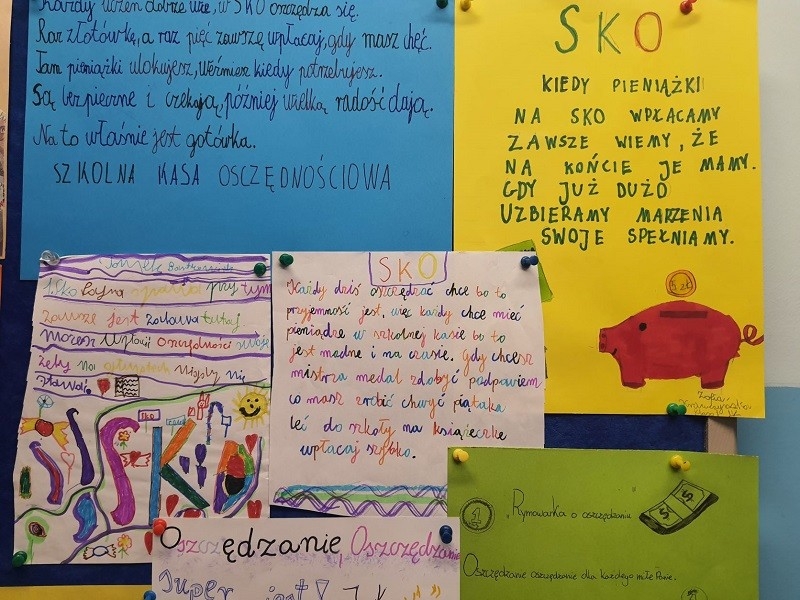 Każdy uczeń dobrze wie, w SKO oszczędza się.
Raz złotówkę, a raz pięć zawszę wpłacaj, gdy masz chęć.
Tam pieniążki ulokujesz, weźmiesz kiedy potrzebujesz.
Są bezpieczne i czekają, później wielką radość dają.
Na to właśnie jest gotówka.
SZKOLNA KASA OSZCZĘDNOŚCIOWA
SKO
KIEDY PIENIĄŻKI
NA SKO WPŁACAMY
ZAWSZE WIEMY, ŻE
NA KOŃCIE JE MAMY.
GDY JUŻ DUŻO
UZBIERAMY MARZENIA
SWOJE SPEŁNIAMY.
5 zł
Zofia
SKO fajna sprawa przy tym
zawsze jest zabawa tutaj
możesz wpłacić oszczędności swoje
żeby
SKO
SKO
Każdy dziś oszczędzać chce bo to
przyjemność jest, więc każdy chce mieć
pieniądze w szkolnej kasie bo to
jest modne i na czasie. Gdy chcesz
mistrza medal zdobyć podpowiem
co masz zrobić chwyć piątaka
leć do szkoły na książeczkę
wpłacaj szybko.
Oszczędzanie, Oszczędzanie
Super jest!
Rymowanka o oszczędzaniu
$
$
1
Oszczędzanie oszczędzanie dla każdego miłe Panie.